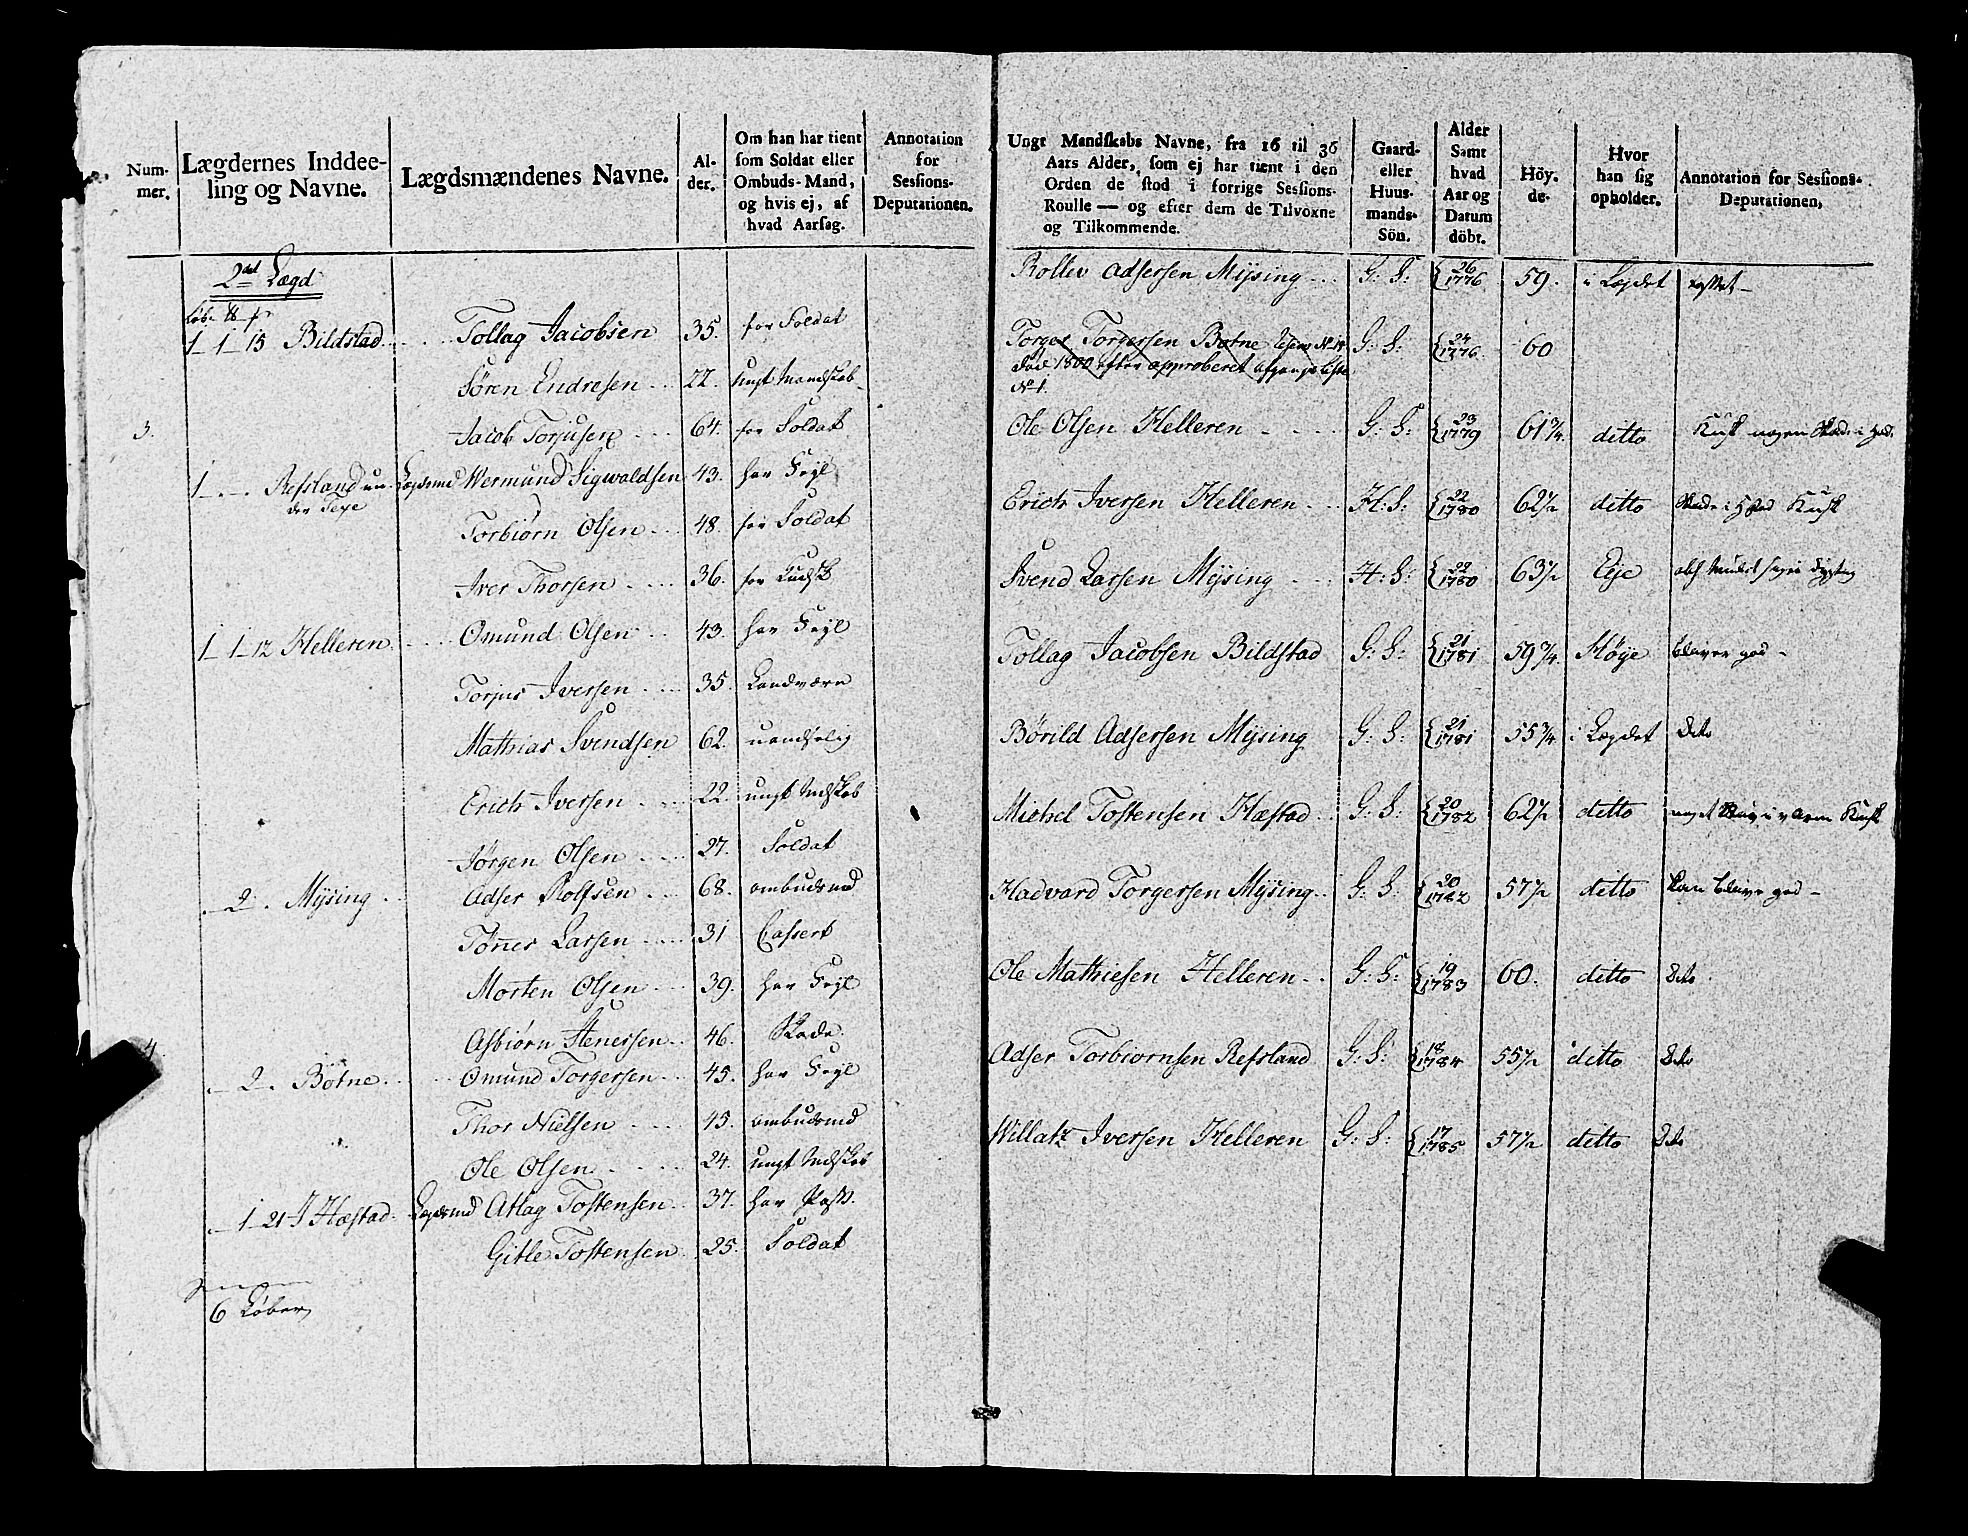 Num-
mer.
Lægdernes Inddee-
ling og Navne.
Lægdsmændenes Navne.
Al-
der.
Om han har tient
som Soldat eller
Ombuds-Mand,
og hvis ej, af
hvad Aarsag.
Annotation
for
Sessions-
Deputationen.
2det Lægd
1 - 1 - 15 Bildstad Tollag Jacobsen 35. for Soldat
Søren Endresen 22. ungt Mandskab
3. Jacob Torjusen 64. for Soldat
1 Refsland un- Lægdsmd Wermund Sigwaldsen 43. har Fejl
der Texe
Torbiørn Olsen 48. for Soldat
Iver Thorsen 36. for Kudsk
1 - 1 - 12 Helleren Omund Olsen 43. har Fejl
Torjus Iversen 35. Landværn
Mathias Svendsen 62. uandselig
Erich Iversen 22. ungt Mdskab
Jørgen Olsen 27. Soldat
2. Mýsing Adser Rolfsen 68. ombudsmd
Tønes Larsen 31 Casseret
Morten Olsen 39. har Fejl
4. Asbiørn Stenersen 46. Skade
2. Bötne Omund Torgersen 45. har Fejl
Thor Nielsen 45. ombudsmd
Ole Olsen 24. ungt Mdskab
1 - 21 Hæstad Lægdsmd Atlag Tostensen 37. har Pass.
Gitle Tostensen 25. Soldat
6 Løber
Ungt Mandskabs Navne, fra 16 til 36
Aars Alder, som ej har tient i den
Orden de stod i forrige Sessions-
Roulle — og efter dem de Tilvoxne
og Tilkommende.
Gaard-
eller
Huus-
mands-
Sön.
Alder
Samt
hvad
Aar og
Datum
döbt.
Höy-
de.
Hvor
han sig
opholder.
Annotation for Sessions-
Deputationen,
Rollev Adsersen Mýsing G: S: 26 1776 59. i Lægdet
Torger Torgersen Botne G: S: 24 1776 60
død 1800 efter approberet afgangs Liste
No 1.
Ole Olsen Helleren G: S: 23 1779 61 3/4 ditto
Erich Iversen Helleren H: S: 22 1780 62 1/2 ditto
Svend Larsen Mýsing H: S: 22 1780 63 1/2 Eje
Tollag Jacobsen Bildstad G: S: 21 1781 59 3/4 Høÿe bliver god
Børild Adsersen Mýsing G: S: 21 1781 55 3/4 i Lægdet Dito
Michel Tostensen Hæstad G: S: 20 1782 62 1/2 ditto
Hadvard Torgersen Mýsing G: S: 20 1782 57 1/2 ditto kan blive god
Ole Mathiesen Helleren G: S: 19 1783 60. ditto Dito
Adser Torbiørnsen Refsland G: S: 18 1784 55 1/2 ditto Dito
Willatz Iversen Helleren G: S: 17 1785 57 1/2 ditto Dito